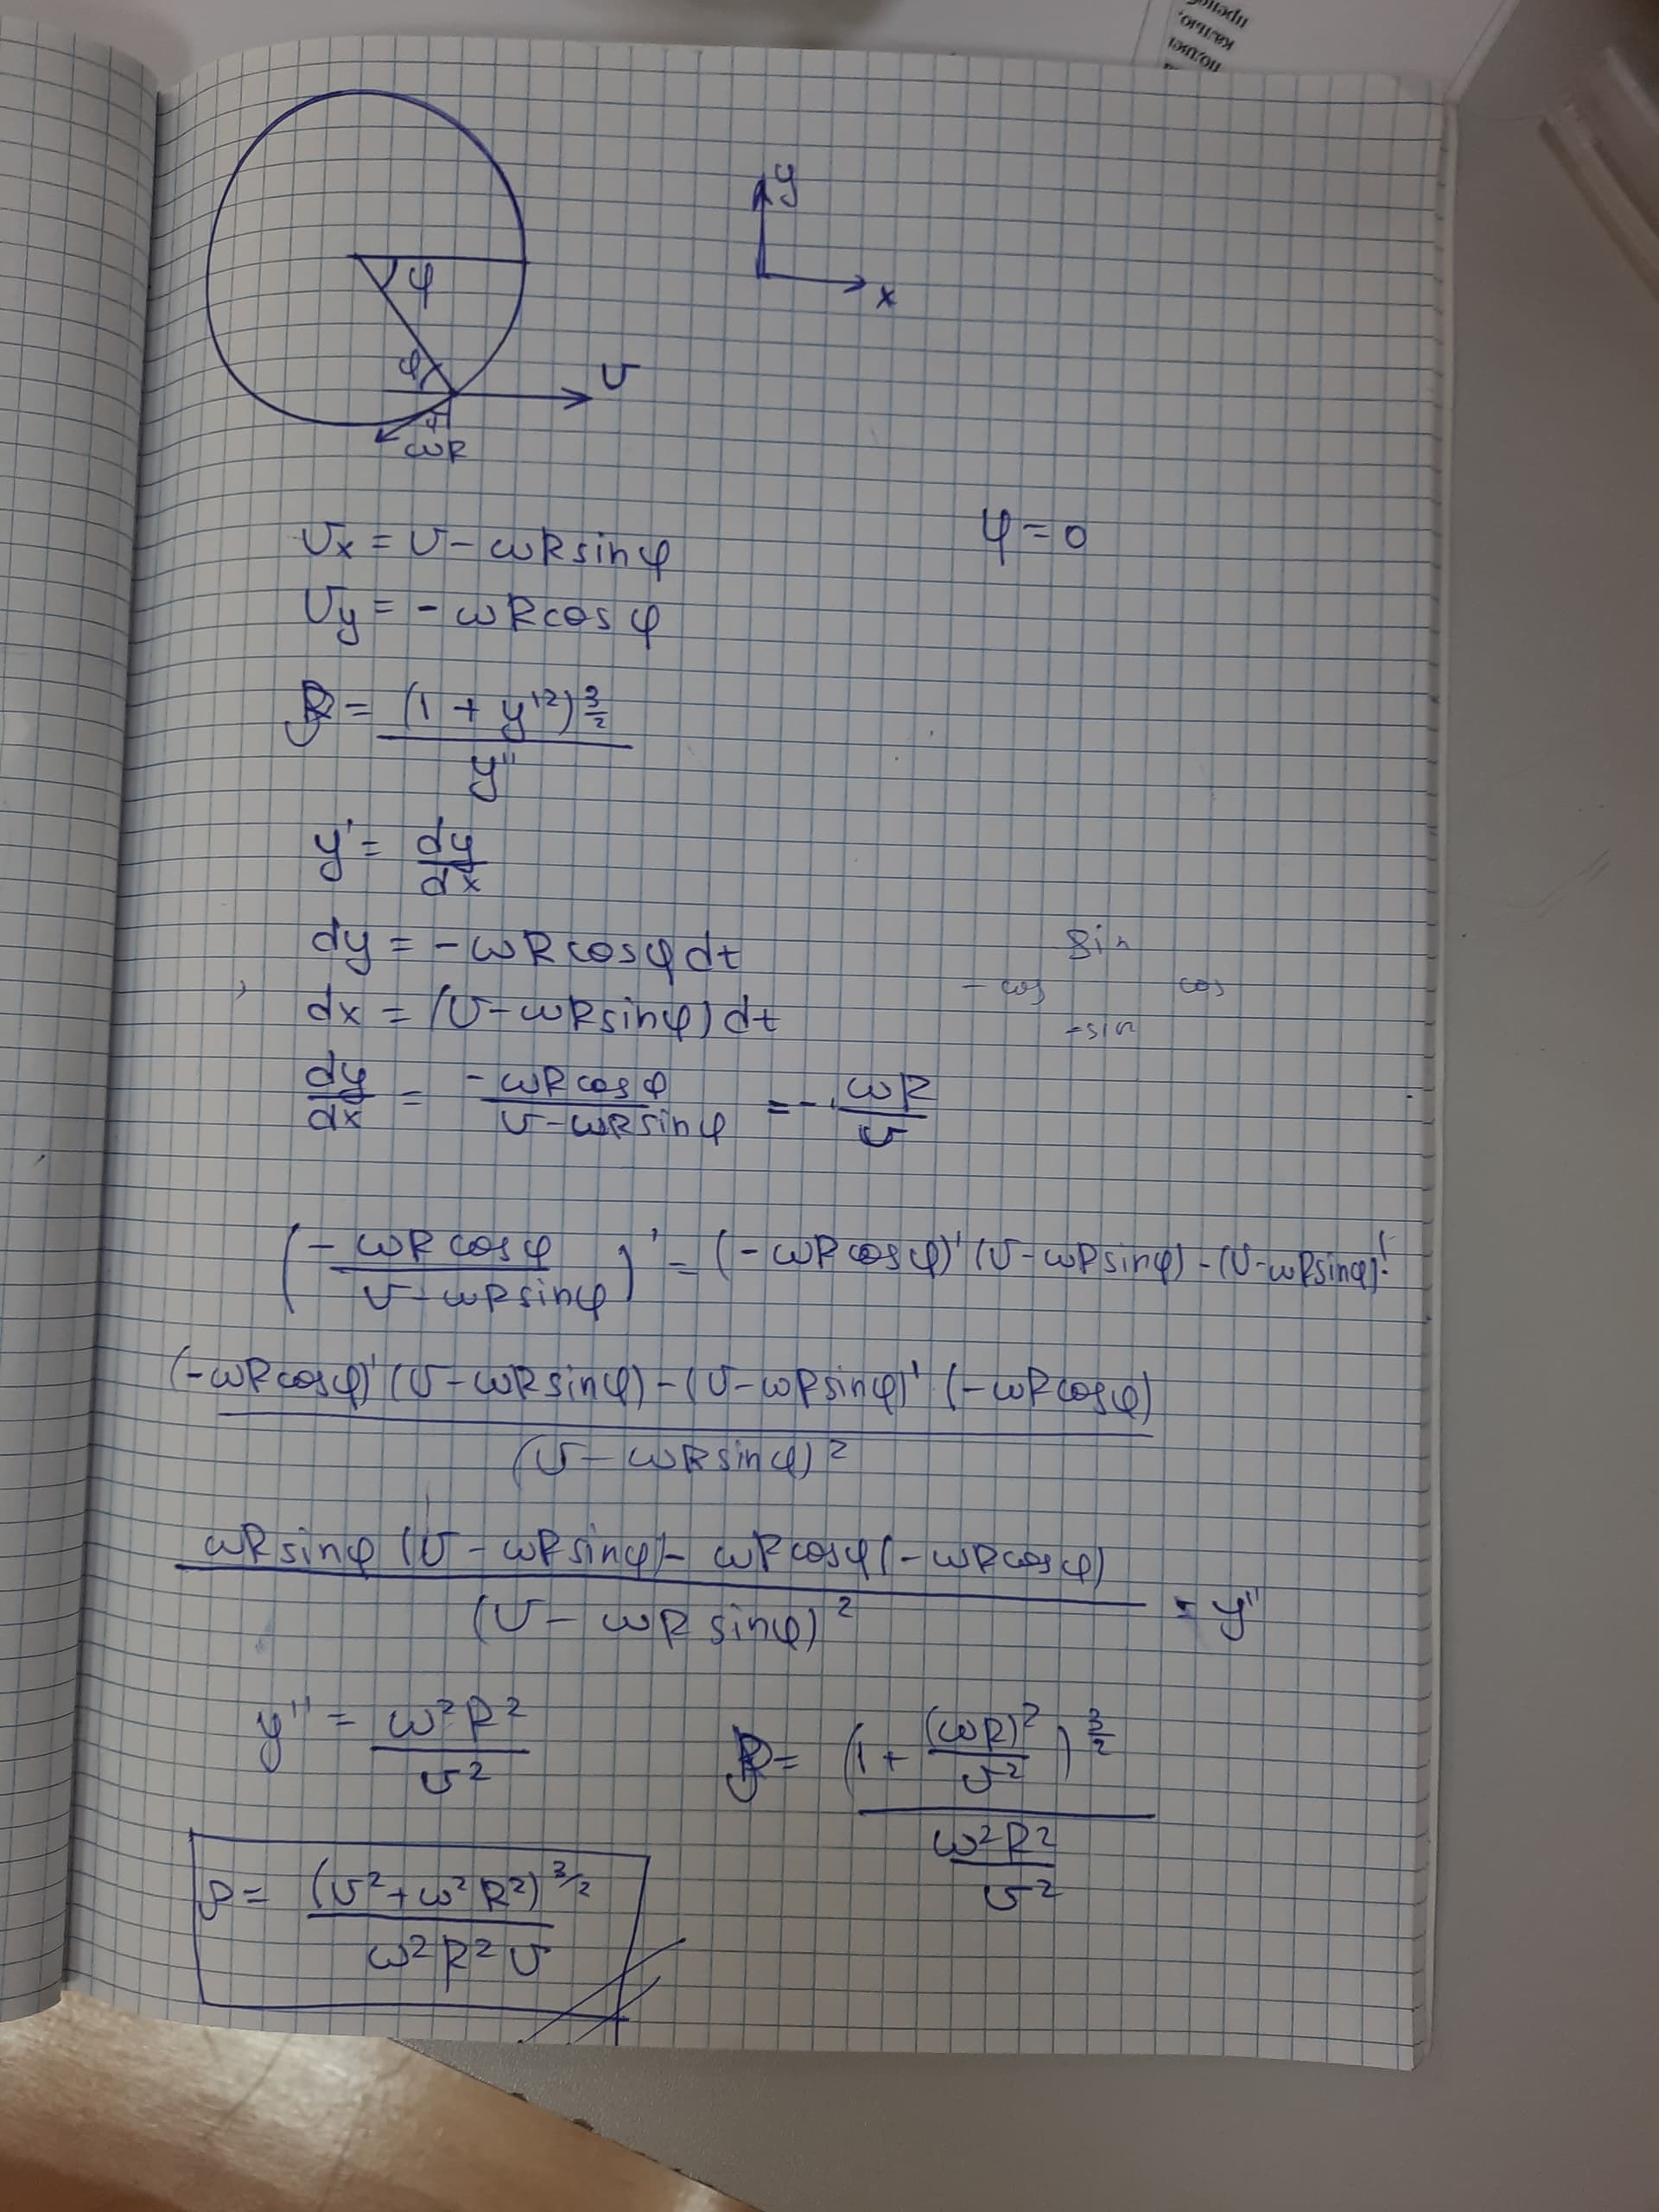 прейд
калью,
полнот
y
x
φ
φ
υ
ωR
υx = υ - ωR sinφ
φ = 0
υy = - ωR cosφ
ρ = (1 + y'²)^3/2 / y''
y' = dy/dx
dy = -ωR cosφ dt
sin
- cos cos
-sin
dx = (υ - ωR sinφ) dt
dy/dx = -ωR cosφ / υ - ωR sinφ = - ωR/υ
(- ωR cosφ / υ - ωR sinφ)' = (-ωR cosφ)' (υ - ωR sinφ) - (υ - ωR sinφ)'.
(-ωR cosφ)' (υ - ωR sinφ) - (υ - ωR sinφ)' (-ωR cosφ) / (υ - ωR sinφ)²
ωR sinφ (υ - ωR sinφ) - ωR cosφ (-ωR cosφ) / (υ - ωR sinφ)² = y''
y'' = ω²R² / υ²
ρ = (1 + (ωR)²/υ²)^3/2 / ω²R²/υ²
ρ = (υ² + ω²R²)^3/2 / ω²R²υ